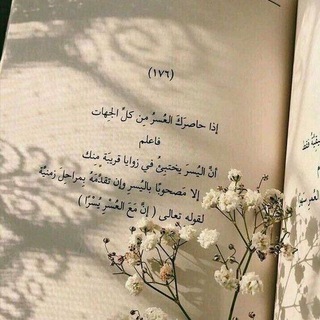 (١٧٦)
إذا حاصرَكَ العُسرُ مِن كلِّ الجِهات
فاعلم
أنَّ اليُسرَ يختبئُ في زوايا قريبَة مِنك
إلا مَصحوبًا باليُسر وإن تقدَّمَهُ بمراحِل زمنيَّة
لقوله تعالى ( إنَّ مَعَ العُسْرِ يُسْرًا )